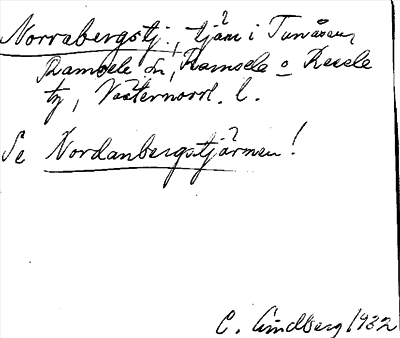 Norrabergstj., tjärn i Tunåsen,
Ramsele sn, Ramsele o Resele
tg, Västernorrl. l.
Se Nordanbergstjärnen!
C. Lindberg 1932